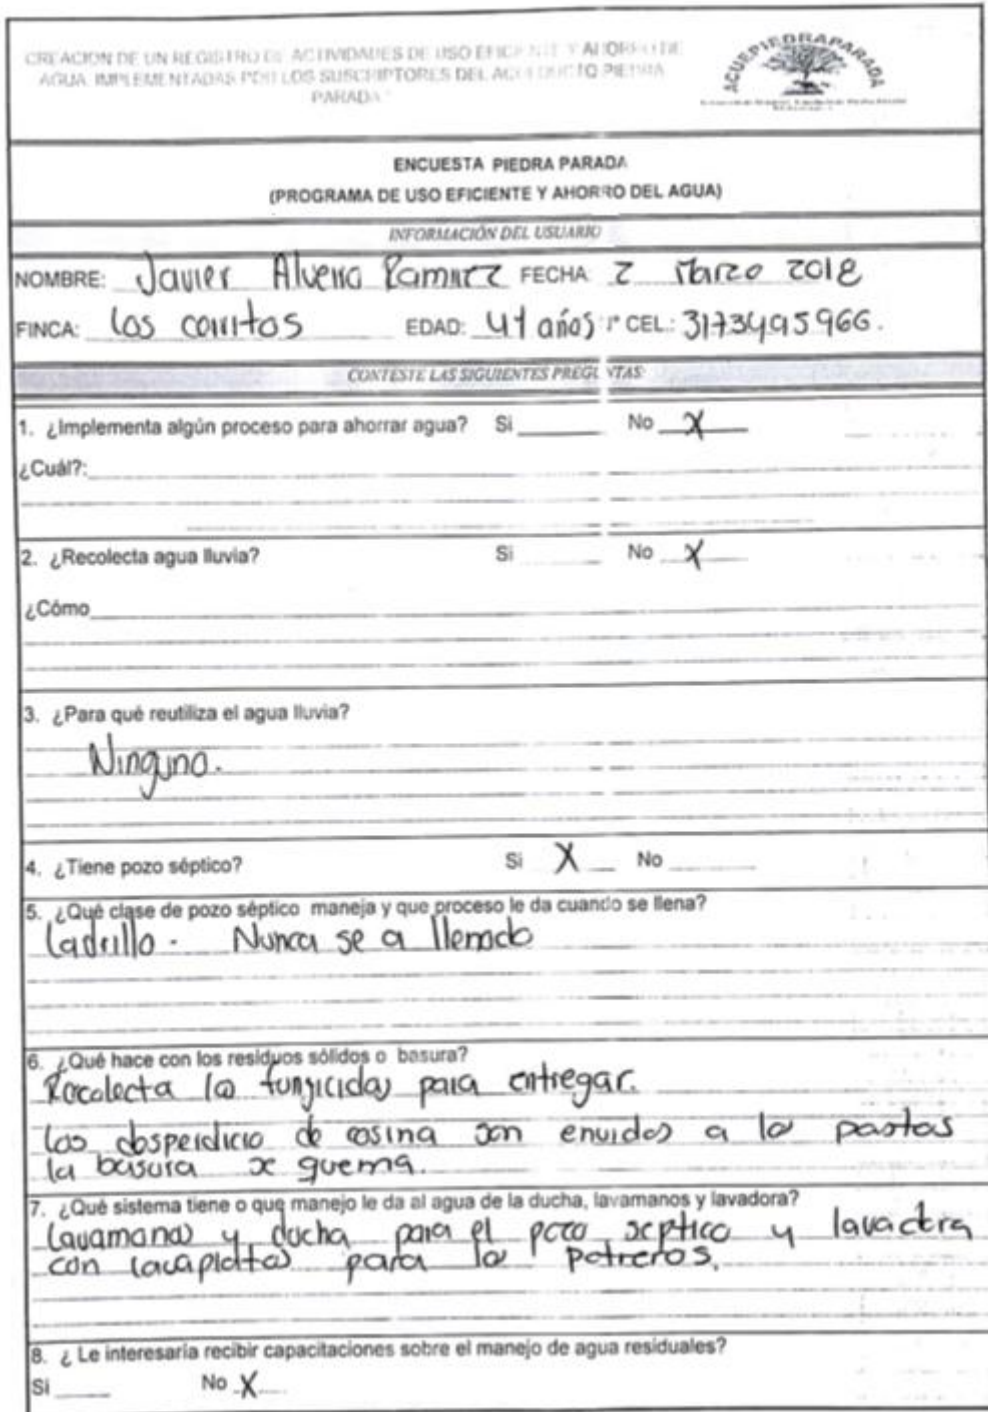 CREACION DE UN REGISTRO DE ACTIVIDADES DE USO EFICIENTE Y AHORRO DE
AGUA IMPLEMENTADAS POR LOS SUSCRIPTORES DEL ACUEDUCTO PIEDRA
PARADA"
ACUEPIEDRAPARADA
ENCUESTA PIEDRA PARADA
(PROGRAMA DE USO EFICIENTE Y AHORRO DEL AGUA)
INFORMACIÓN DEL USUARIO
NOMBRE: Javier Ramirez FECHA 2 Marzo 2018
FINCA: Los EDAD: 41 años CEL.: 3173495966.
CONTESTE LAS SIGUIENTES PREGUNTAS:
1. ¿Implementa algún proceso para ahorrar agua? Si No X
¿Cuál?:
2. ¿Recolecta agua lluvia? Si No X
¿Cómo
3. ¿Para qué reutiliza el agua lluvia?
Ninguno.
4. ¿Tiene pozo séptico? Si X No
5. ¿Qué clase de pozo séptico maneja y que proceso le da cuando se llena?
Ladrillo. Nunca se a llenado
6. ¿Qué hace con los residuos sólidos o basura?
Recolecta los fungicidas para entregar.
los desperdicio de cosina son envidos a los pastos
la basura se quema.
7. ¿Qué sistema tiene o que manejo le da al agua de la ducha, lavamanos y lavadora?
Lavamanos y ducha para el pozo septico y lavadora
con lavaplatos para los potreros.
8. ¿ Le interesaría recibir capacitaciones sobre el manejo de agua residuales?
Si No X